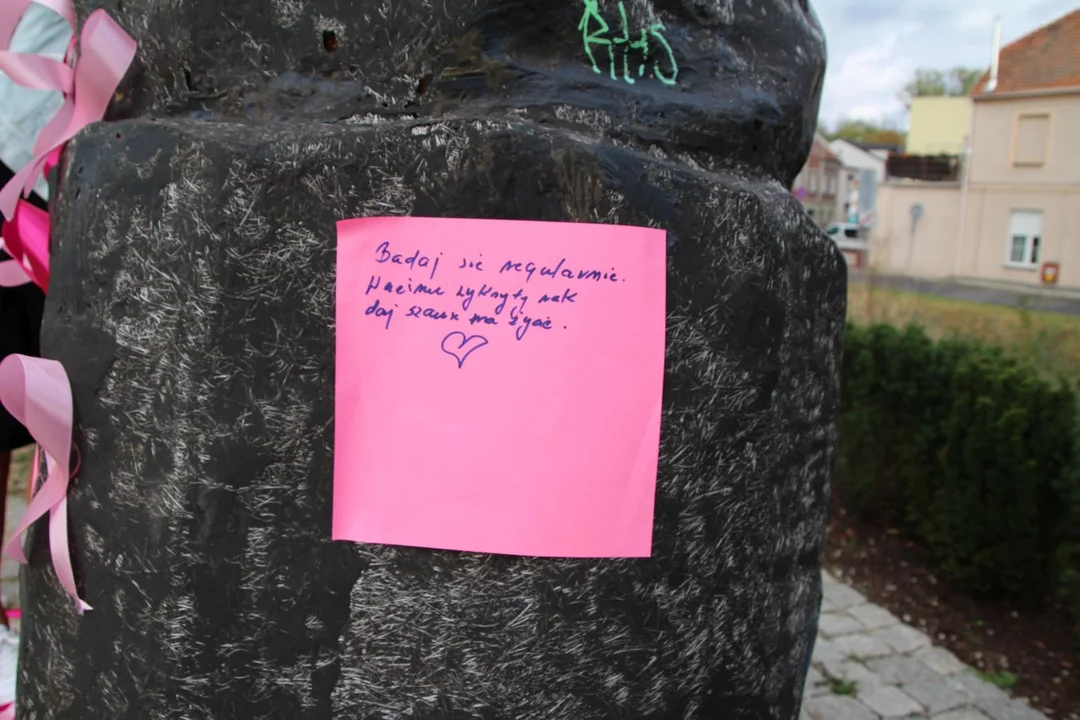 RIHS
Badaj się regularnie.
Wcześnie wykryty rak
daj szansę na życie.